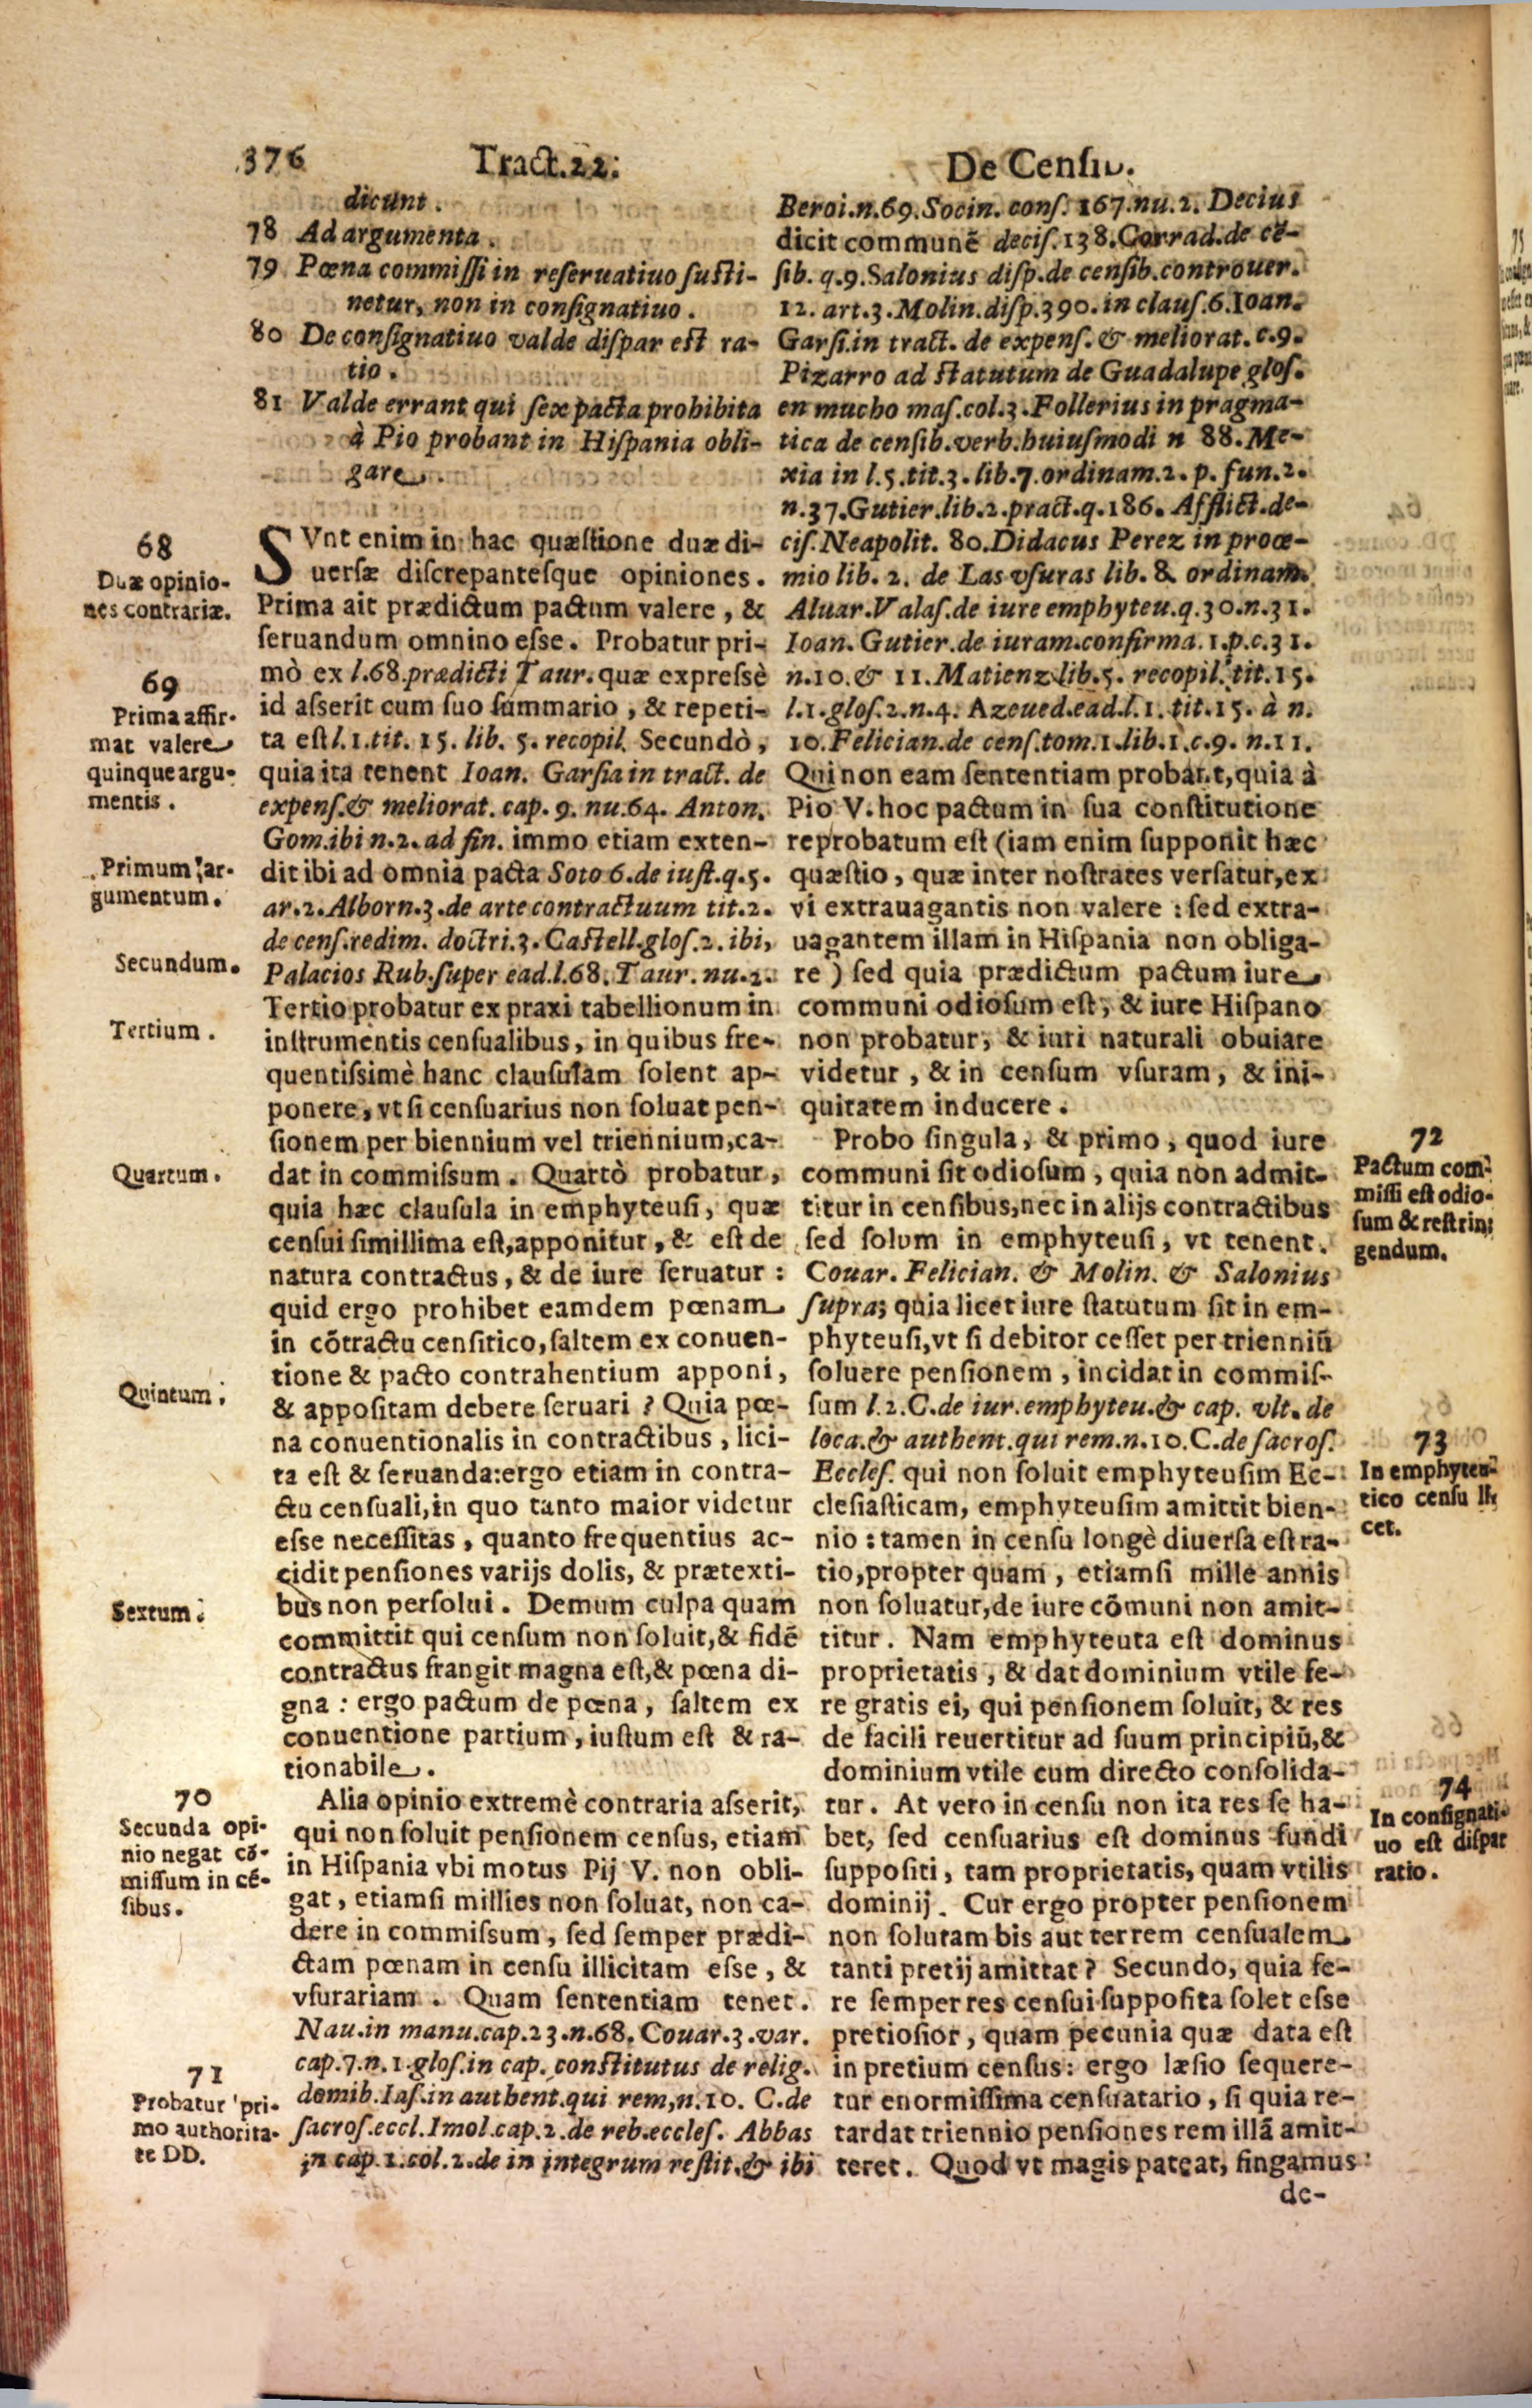 376 Tract.22. De Censib.
dicunt.
78 Ad argumenta.
79 Pœna commissi in reseruatiuo susti-
netur, non in consignatiuo.
80 De consignatiuo valde dispar est ra-
tio.
81 Valde errant qui sex pacta prohibita
à Pio probant in Hispania obli-
gare.
68
Duæ opinio-
nes contrariæ.
69
Prima affir-
mat valere
quinque argu-
mentis.
Primum ar-
gumentum.
Secundum.
Tertium.
Quartum.
Quintum.
Sextum.
70
Secunda opi-
nio negat cõ-
missum in cē-
sibus.
71
Probatur pri-
mo authorita-
te DD.
SVnt enim in hac quæstione duæ di-
uersæ discrepantesque opiniones.
Prima ait prædictum pactum valere, &
seruandum omnino esse. Probatur pri-
mò ex l.68.prædicti Taur. quæ expressè
id asserit cum suo summario, & repeti-
ta est l.1.tit. 15. lib. 5. recopil. Secundò,
quia ita tenent Ioan. Garsia in tract. de
expens.& meliorat. cap. 9. nu.64. Anton.
Gom.ibi n.2. ad fin. immo etiam exten-
dit ibi ad omnia pacta Soto 6.de iust.q.5.
ar.2.Alborn.3.de arte contractuum tit.2.
de cens.redim. doctri.3.Castell.glos.2. ibi,
Palacios Rub.super ead.l.68.Taur. nu.2.
Tertio probatur ex praxi tabellionum in
instrumentis censualibus, in quibus fre-
quentissimè hanc clausulam solent ap-
ponere, vt si censuarius non soluat pen-
sionem per biennium vel triennium,ca-
dat in commissum. Quartò probatur,
quia hæc clausula in emphyteusi, quæ
censui simillima est,apponitur, & est de
natura contractus, & de iure seruatur:
quid ergo prohibet eamdem pœnam
in cõtractu censitico,saltem ex conuen-
tione & pacto contrahentium apponi,
& appositam debere seruari? Quia pœ-
na conuentionalis in contractibus, lici-
ta est & seruanda:ergo etiam in contra-
ctu censuali,in quo tanto maior videtur
esse necessitas, quanto frequentius ac-
cidit pensiones varijs dolis, & prætexti-
bus non persolui. Demum culpa quam
committit qui censum non soluit,& fidē
contractus frangit magna est,& pœna di-
gna: ergo pactum de pœna, saltem ex
conuentione partium, iustum est & ra-
tionabile.
Alia opinio extremè contraria asserit,
qui non soluit pensionem census, etiam
in Hispania vbi motus Pij V. non obli-
gat, etiamsi millies non soluat, non ca-
dere in commissum, sed semper prædi-
ctam pœnam in censu illicitam esse, &
vsurariam. Quam sententiam tenet.
Nau.in manu.cap.23.n.68. Couar.3.var.
cap.7.n.1.glos.in cap. constitutus de relig.
domib.Ias.in authent.qui rem,n.10. C.de
sacros.eccl.Imol.cap.2.de reb.eccles. Abbas
in cap.1.col.2.de in integrum restit.& ibi
Beroi.n.69.Socin. cons. 167.nu.2. Decius
dicit communē decis.138.Corrad.de cē-
sib. q.9.Salonius disp.de censib.controuer.
12. art.3.Molin.disp.390.in claus.6.Ioan.
Garsi.in tract. de expens. & meliorat. c.9.
Pizarro ad statutum de Guadalupe glos.
en mucho mas.col.3.Follerius in pragma-
tica de censib.verb.huiusmodi n 88.Me-
xia in l.5.tit.3.lib.7.ordinam.2. p. fun.2.
n.37.Gutier.lib.2.pract.q.186. Afflict.de-
cis.Neapolit. 80.Didacus Perez in proœ-
mio lib. 2. de Las vsuras lib.8. ordinam.
Aluar.Valas.de iure emphyteu.q.30.n.31.
Ioan. Gutier.de iuram.confirma.1.p.c.31.
n.10.& 11.Matienz.lib.5. recopil. tit.15.
l.1.glos.2.n.4. Azeued.ead.l.1. tit.15. à n.
10.Felician.de cens.tom.1.lib.1.c.9. n.11.
Qui non eam sententiam probant,quia à
Pio V. hoc pactum in sua constitutione
reprobatum est (iam enim supponit hæc
quæstio, quæ inter nostrates versatur,ex
vi extrauagantis non valere: sed extra-
uagantem illam in Hispania non obliga-
re) sed quia prædictum pactum iure
communi odiosum est, & iure Hispano
non probatur, & iuri naturali obuiare
videtur, & in censum vsuram, & ini-
quitatem inducere.
Probo singula, & primo, quod iure
communi sit odiosum, quia non admit-
titur in censibus,nec in alijs contractibus
sed solum in emphyteusi, vt tenent.
Couar. Felician. & Molin. & Salonius
supra; quia licet iure statutum sit in em-
phyteusi,vt si debitor cesset per trienniũ
soluere pensionem, incidat in commis-
sum l.2.C.de iur.emphyteu.& cap. vlt. de
loca.& authent.qui rem.n.10.C.de sacros.
Eccles. qui non soluit emphyteusim Ec-
clesiasticam, emphyteusim amittit bien-
nio: tamen in censu longè diuersa est ra-
tio,propter quam, etiamsi mille annis
non soluatur,de iure cõmuni non amit-
titur. Nam emphyteuta est dominus
proprietatis, & dat dominium vtile fe-
re gratis ei, qui pensionem soluit, & res
de facili reuertitur ad suum principiũ,&
dominium vtile cum directo consolida-
tur. At vero in censu non ita res se ha-
bet, sed censuarius est dominus fundi
suppositi, tam proprietatis, quam vtilis
dominij. Cur ergo propter pensionem
non solutam bis aut ter rem censualem
tanti pretij amittat? Secundo, quia fe-
re semper res censui supposita solet esse
pretiosior, quam pecunia quæ data est
in pretium census: ergo læsio sequere-
tur enormissima censuatario, si quia re-
tardat triennio pensiones rem illã amit-
teret. Quod vt magis pateat, fingamus
de-
72
Pactum com-
missi est odio-
sum & restrin-
gendum.
73
In emphyteu-
tico censu li-
cet.
74
In consignati-
uo est dispar
ratio.